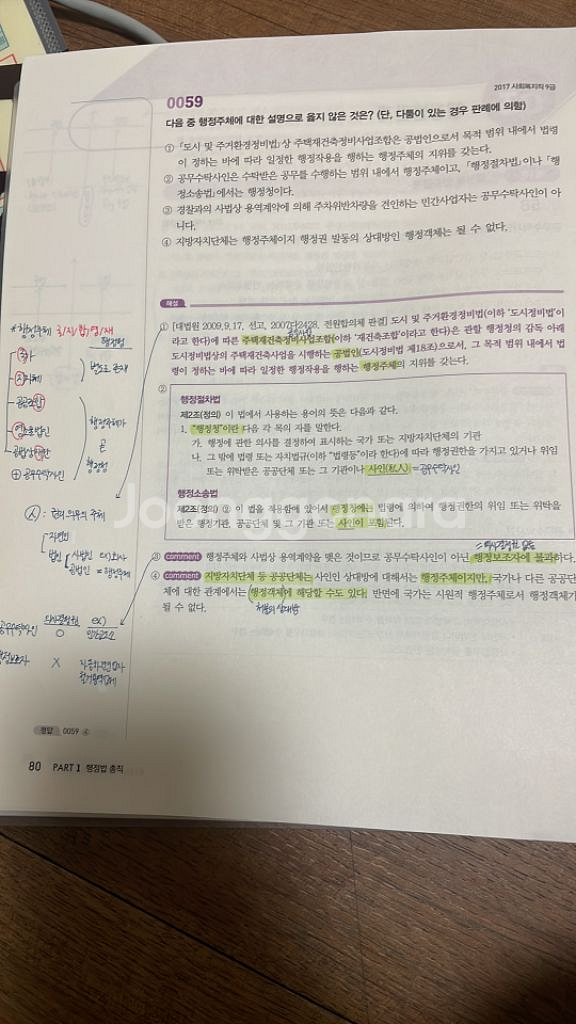 2017 사회복지직 9급
0059
다음 중 행정주체에 대한 설명으로 옳지 않은 것은? (단, 다툼이 있는 경우 판례에 의함)
① 「도시 및 주거환경정비법」상 주택재건축정비사업조합은 공법인으로서 목적 범위 내에서 법령
이 정하는 바에 따라 일정한 행정작용을 행하는 행정주체의 지위를 갖는다.
② 공무수탁사인은 수탁받은 공무를 수행하는 범위 내에서 행정주체이고, 「행정절차법」이나 「행
정소송법」에서는 행정청이다.
③ 경찰과의 사법상 용역계약에 의해 주차위반차량을 견인하는 민간사업자는 공무수탁사인이 아
니다.
④ 지방자치단체는 행정주체이지 행정권 발동의 상대방인 행정객체는 될 수 없다.
해설
① [대법원 2009.9.17, 선고, 2007다2428, 전원합의체 판결] 도시 및 주거환경정비법(이하 '도시정비법'이
라고 한다)에 따른 주택재건축정비사업조합(이하 '재건축조합'이라고 한다)은 관할 행정청의 감독 아래
도시정비법상의 주택재건축사업을 시행하는 공법인(도시정비법 제18조)으로서, 그 목적 범위 내에서 법
령이 정하는 바에 따라 일정한 행정작용을 행하는 행정주체의 지위를 갖는다.
②
행정절차법
제2조(정의) 이 법에서 사용하는 용어의 뜻은 다음과 같다.
1. "행정청"이란 다음 각 목의 자를 말한다.
가. 행정에 관한 의사를 결정하여 표시하는 국가 또는 지방자치단체의 기관
나. 그 밖에 법령 또는 자치법규(이하 "법령등"이라 한다)에 따라 행정권한을 가지고 있거나 위임
또는 위탁받은 공공단체 또는 그 기관이나 사인(私人) =공무수탁사인
행정소송법
제2조(정의) ② 이 법을 적용함에 있어서 행정청에는 법령에 의하여 행정권한의 위임 또는 위탁을
받은 행정기관, 공공단체 및 그 기관 또는 사인이 포함된다.
③ comment 행정주체와 사법상 용역계약을 맺은 것이므로 공무수탁사인이 아닌 행정보조자에 불과하다.
④ comment 지방자치단체 등 공공단체는 사인인 상대방에 대해서는 행정주체이지만, 국가나 다른 공공단
체에 대한 관계에서는 행정객체에 해당할 수도 있다. 반면에 국가는 시원적 행정주체로서 행정객체가
될 수 없다.
*행정주체 국/지/합/영/재
행정청
국가
지자체
별도로 존재
공공조합
영조물법인
공법상재단
⊕ 공무수탁사인
행정주체가
곧
행정청
人 : 권리·의무의 주체
자연인
법인 사법인 ex)회사
공법인 = 행정주체
의사결정권 ex)
공무수탁사인 O
행정보조자 X
정답 0059 ④
80 PART 1 행정법 총칙
Joonggonara